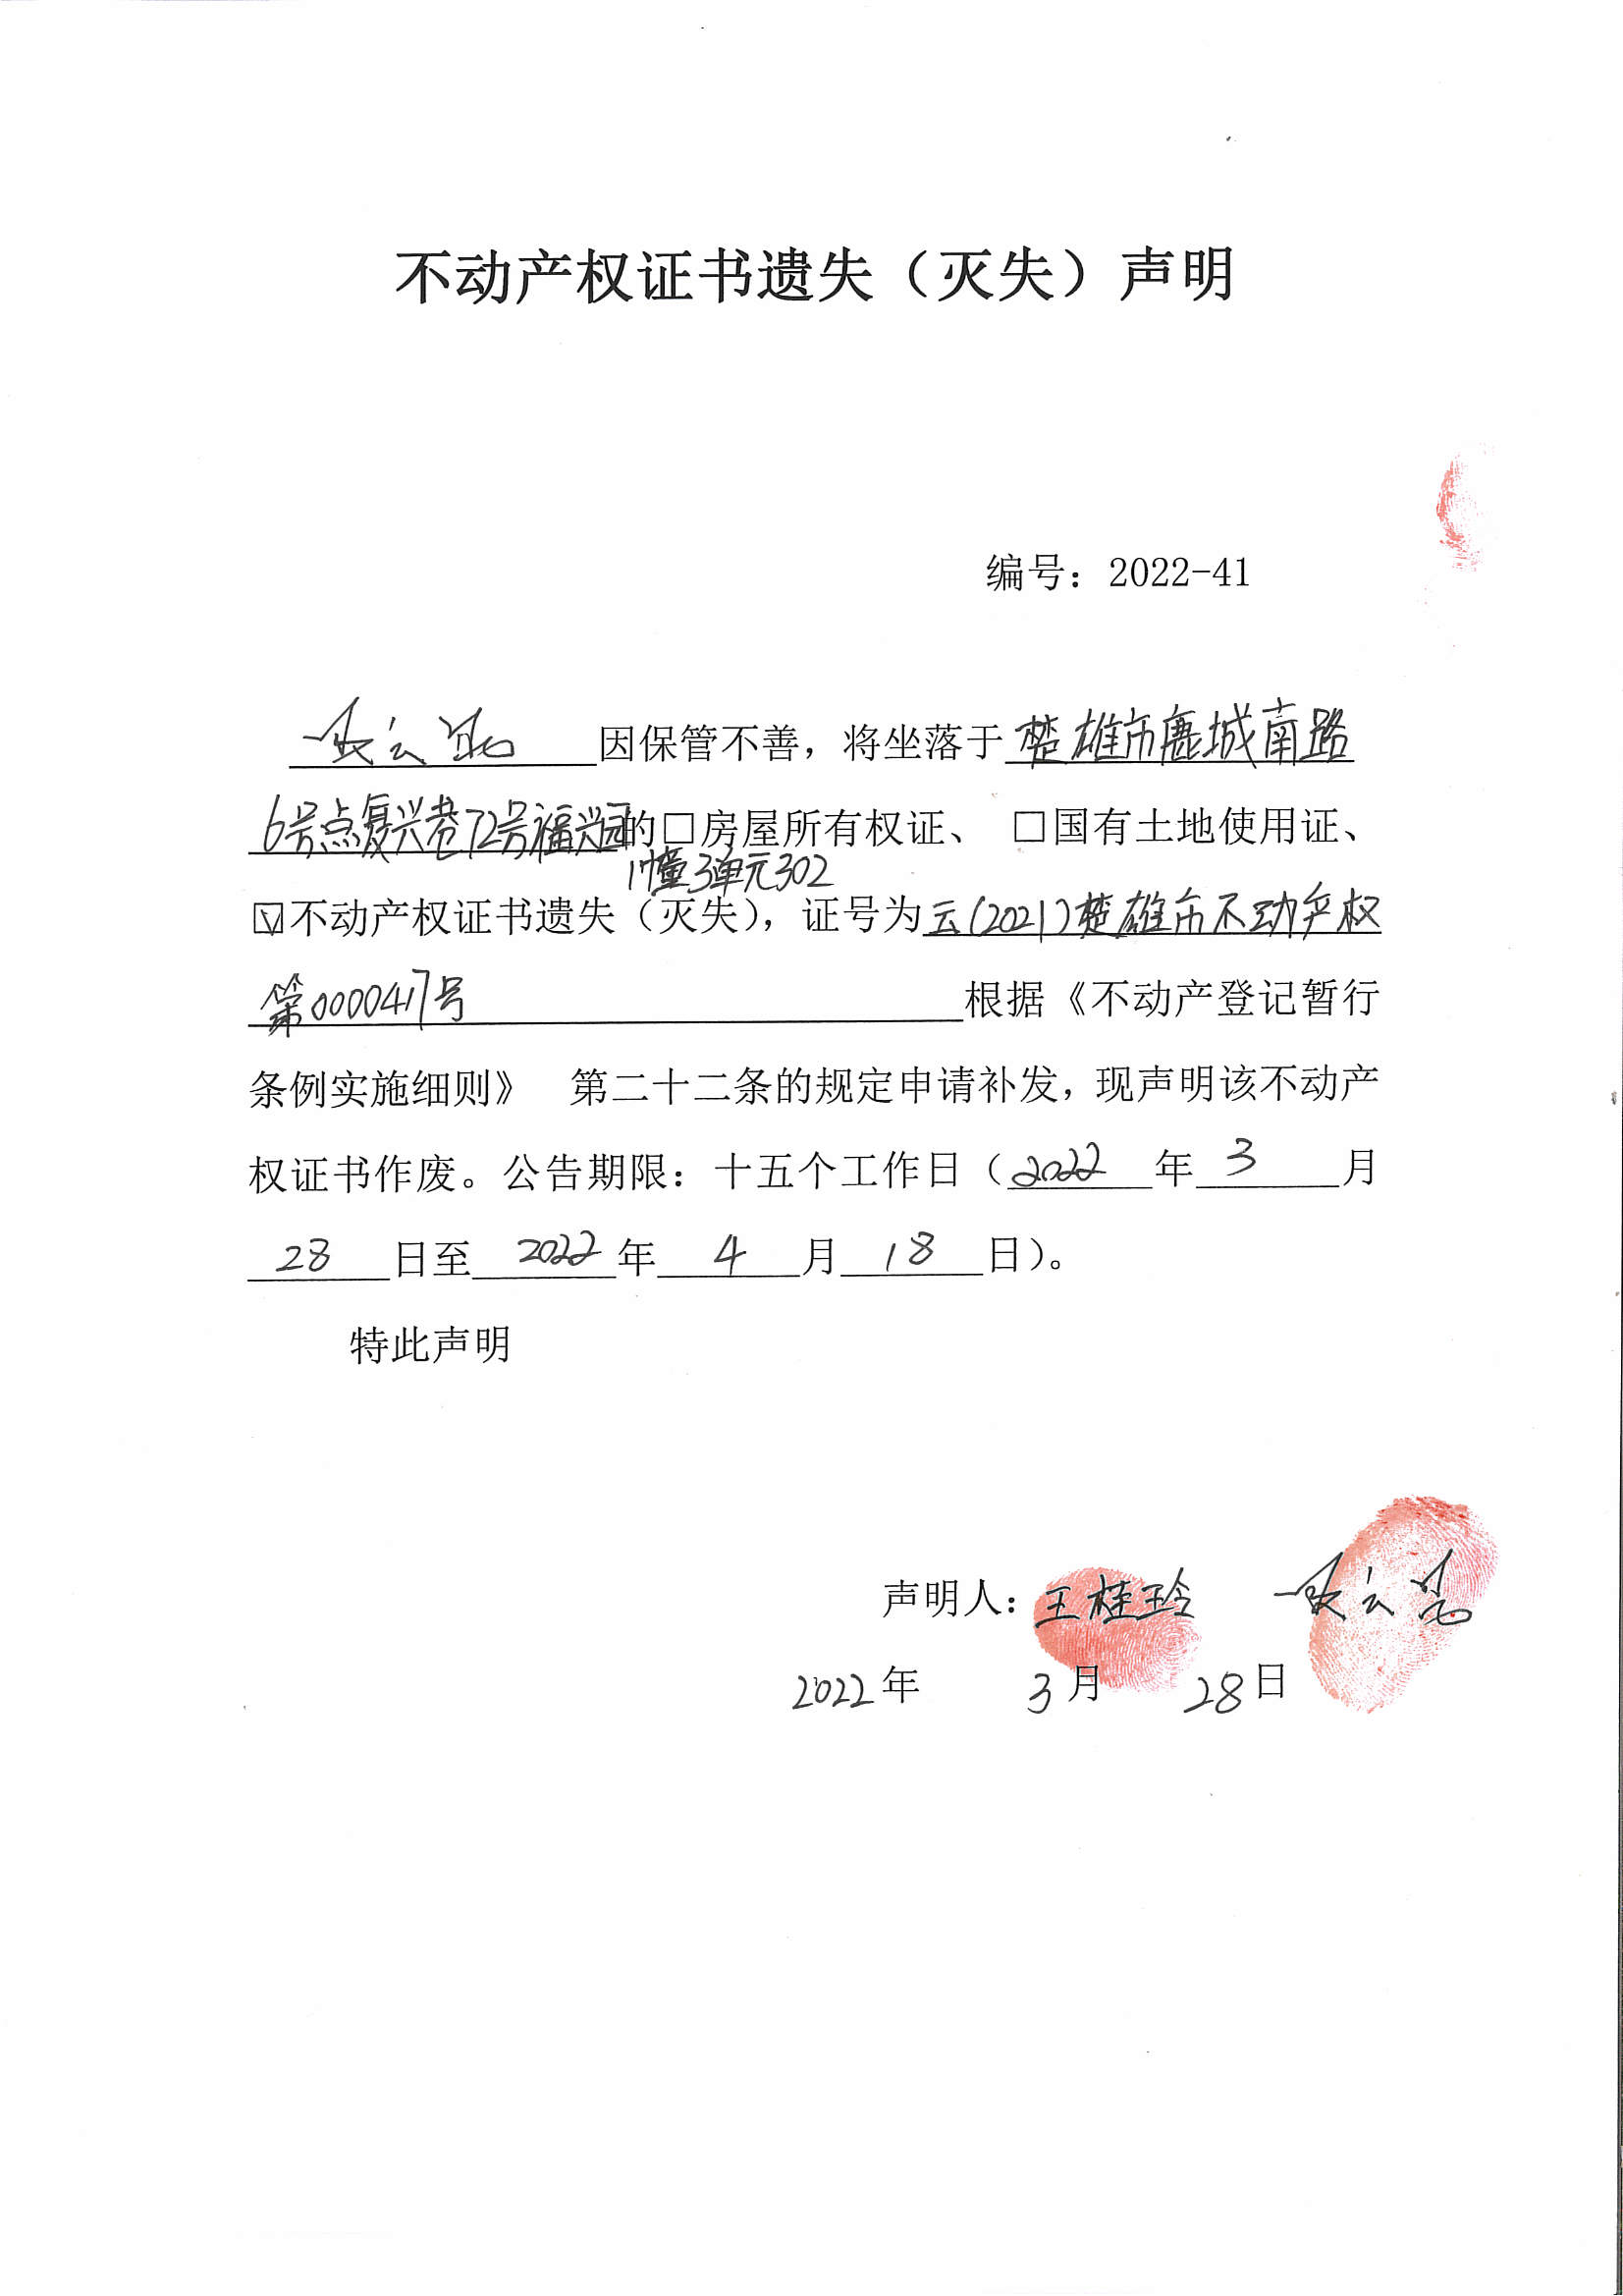 不动产权证书遗失（灭失）声明
编号：2022-41
因保管不善，将坐落于楚雄市鹿城南路
6号点复兴巷72号福兴园的□房屋所有权证、 □国有土地使用证、
1幢3单元302
☑不动产权证书遗失（灭失），证号为云(2021)楚雄市不动产权
第0000417号 根据《不动产登记暂行
条例实施细则》 第二十二条的规定申请补发，现声明该不动产
权证书作废。公告期限：十五个工作日（2022 年 3 月
28 日至 2022 年 4 月 18 日）。
特此声明
声明人：王桂玲
2022年 3月 28日